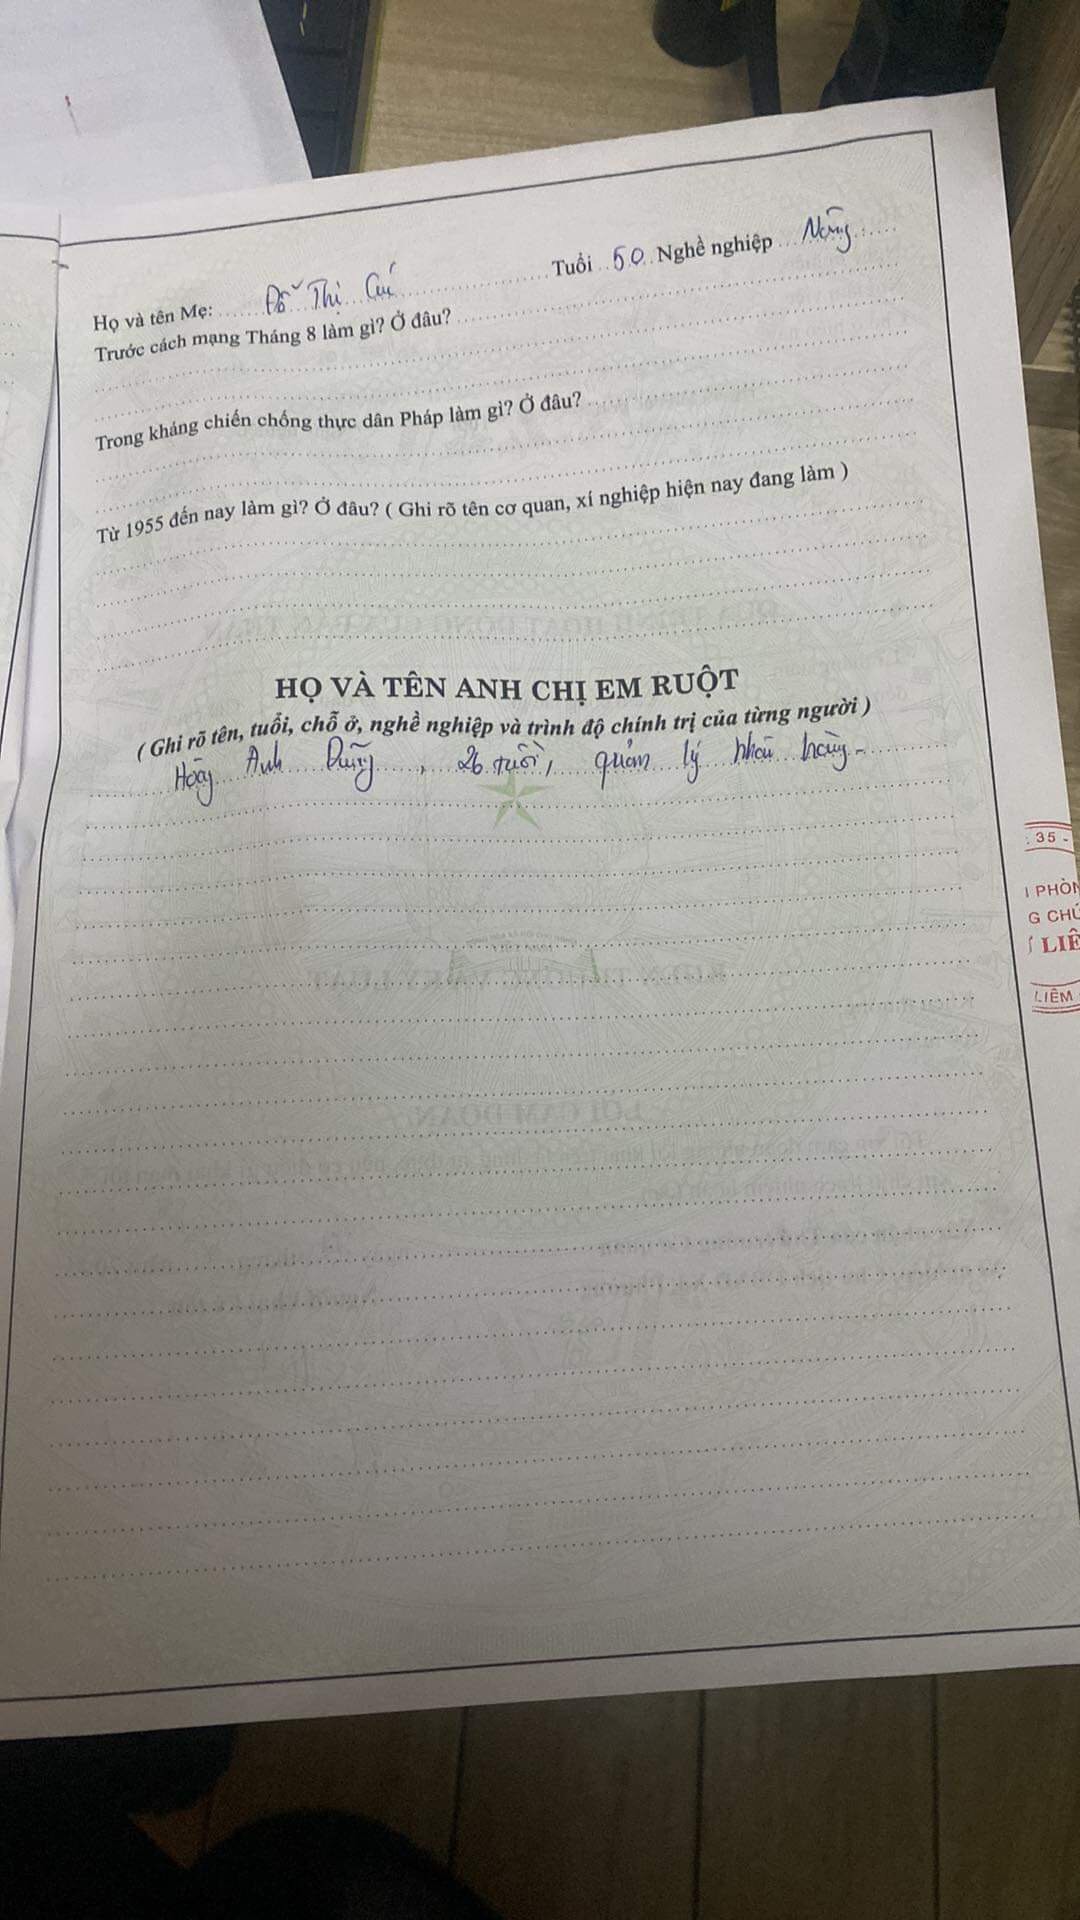 Họ và tên Mẹ: Đỗ Thị Cú Tuổi 50 Nghề nghiệp Nông
Trước cách mạng Tháng 8 làm gì? Ở đâu?
Trong kháng chiến chống thực dân Pháp làm gì? Ở đâu?
Từ 1955 đến nay làm gì? Ở đâu? ( Ghi rõ tên cơ quan, xí nghiệp hiện nay đang làm )
HỌ VÀ TÊN ANH CHỊ EM RUỘT
( Ghi rõ tên, tuổi, chỗ ở, nghề nghiệp và trình độ chính trị của từng người )
Hoàng Anh Dũng, 26 tuổi, quản lý nhà hàng-
: 35 -
PHÒN
G CHỨ
LIÊ
LIÊM